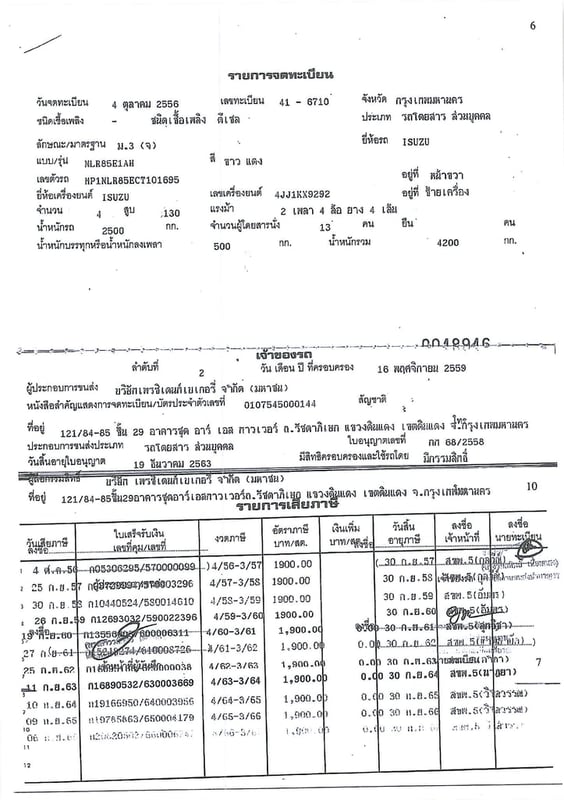 6
รายการจดทะเบียน
วันจดทะเบียน 4 ตุลาคม 2556 เลขทะเบียน 41 - 6710 จังหวัด กรุงเทพมหานคร
ชนิดเชื้อเพลิง - ชนิดเชื้อเพลิง ดีเซล ประเภท รถโดยสาร ส่วนบุคคล
ลักษณะ/มาตรฐาน ม.3 (จ) ยี่ห้อรถ ISUZU
แบบ/รุ่น NLR85E1AH สี ขาว แดง
เลขตัวรถ MP1NLR85ECT101695 อยู่ที่ หน้าขวา
ยี่ห้อเครื่องยนต์ ISUZU เลขเครื่องยนต์ 4JJ1KX9292 อยู่ที่ ซ้ายเครื่อง
จำนวน 4 สูบ 130 แรงม้า 2 เพลา 4 ล้อ ยาง 4 เส้น
น้ำหนักรถ 2500 กก. จำนวนผู้โดยสารนั่ง 13 คน ยืน คน
น้ำหนักบรรทุกหรือน้ำหนักลงเพลา 500 กก. น้ำหนักรวม 4200 กก.
0048946
เจ้าของรถ
ลำดับที่ 2 วัน เดือน ปี ที่ครอบครอง 16 พฤศจิกายน 2559
ผู้ประกอบการขนส่ง บริษัทเพรซิเดนท์เบเกอรี่ จำกัด (มหาชน)
หนังสือสำคัญแสดงการจดทะเบียน/บัตรประจำตัวเลขที่ 0107545000144 สัญชาติ
ที่อยู่ 121/84-85 ชั้น 29 อาคารชุด อาร์ เอส ทาวเวอร์ ถ.รัชดาภิเษก แขวงดินแดง เขตดินแดง จ.กรุงเทพมหานคร
ประกอบการขนส่งประเภท รถโดยสาร ส่วนบุคคล ใบอนุญาตเลขที่ กท 68/2558
วันสิ้นอายุใบอนุญาต 19 ธันวาคม 2563 มีสิทธิครอบครองและใช้รถโดย มีกรรมสิทธิ์
ผู้ถือกรรมสิทธิ์ บริษัทเพรซิเดนท์เบเกอรี่ จำกัด (มหาชน)
ที่อยู่ 121/84-85ชั้น29อาคารชุดอาร์เอสทาวเวอร์ถ.รัชดาภิเษก แขวงดินแดง เขตดินแดง จ.กรุงเทพมหานคร 10
รายการเสียภาษี
วันเสียภาษี ใบเสร็จรับเงิน เลขที่คุม/เลขที่ งวดภาษี อัตราภาษี บาท/สต. เงินเพิ่ม บาท/สต. วันสิ้น อายุภาษี ลงชื่อ เจ้าหน้าที่ ลงชื่อ นายทะเบียน
1 4 ต.ค.56 ก05306295/570000099 4/56-3/57 1900.00 30 ก.ย.57
2 25 ก.ย.57 4/57-3/58 1900.00 30 ก.ย.58
3 30 ก.ย.58 ก10440524/590014610 4/58-3/59 1900.00 30 ก.ย.59
4 26 ก.ย.59 ก12693032/590022396 4/59-3/60 1900.00 30 ก.ย.60
5 19 ก.ย.60 4/60-3/61 1,900.00 0.00 30 ก.ย.61
27 ก.ย.61 4/61-3/62 1,900.00 0.00 30 ก.ย.62
25 ก.ค.62 4/62-3/63 1,900.00 0.00 30 ก.ย.63 7
11 ก.ย.63 ก16890532/630003669 4/63-3/64 1,900.00 0.00 30 ก.ย.64
10 พ.ย.64 ก19166950/640003956 4/64-3/65 1,900.00 0.00 30 ก.ย.65
09 พ.ย.65 4/65-3/66 1,900.00 0.00 30 ก.ย.66
10
11
12